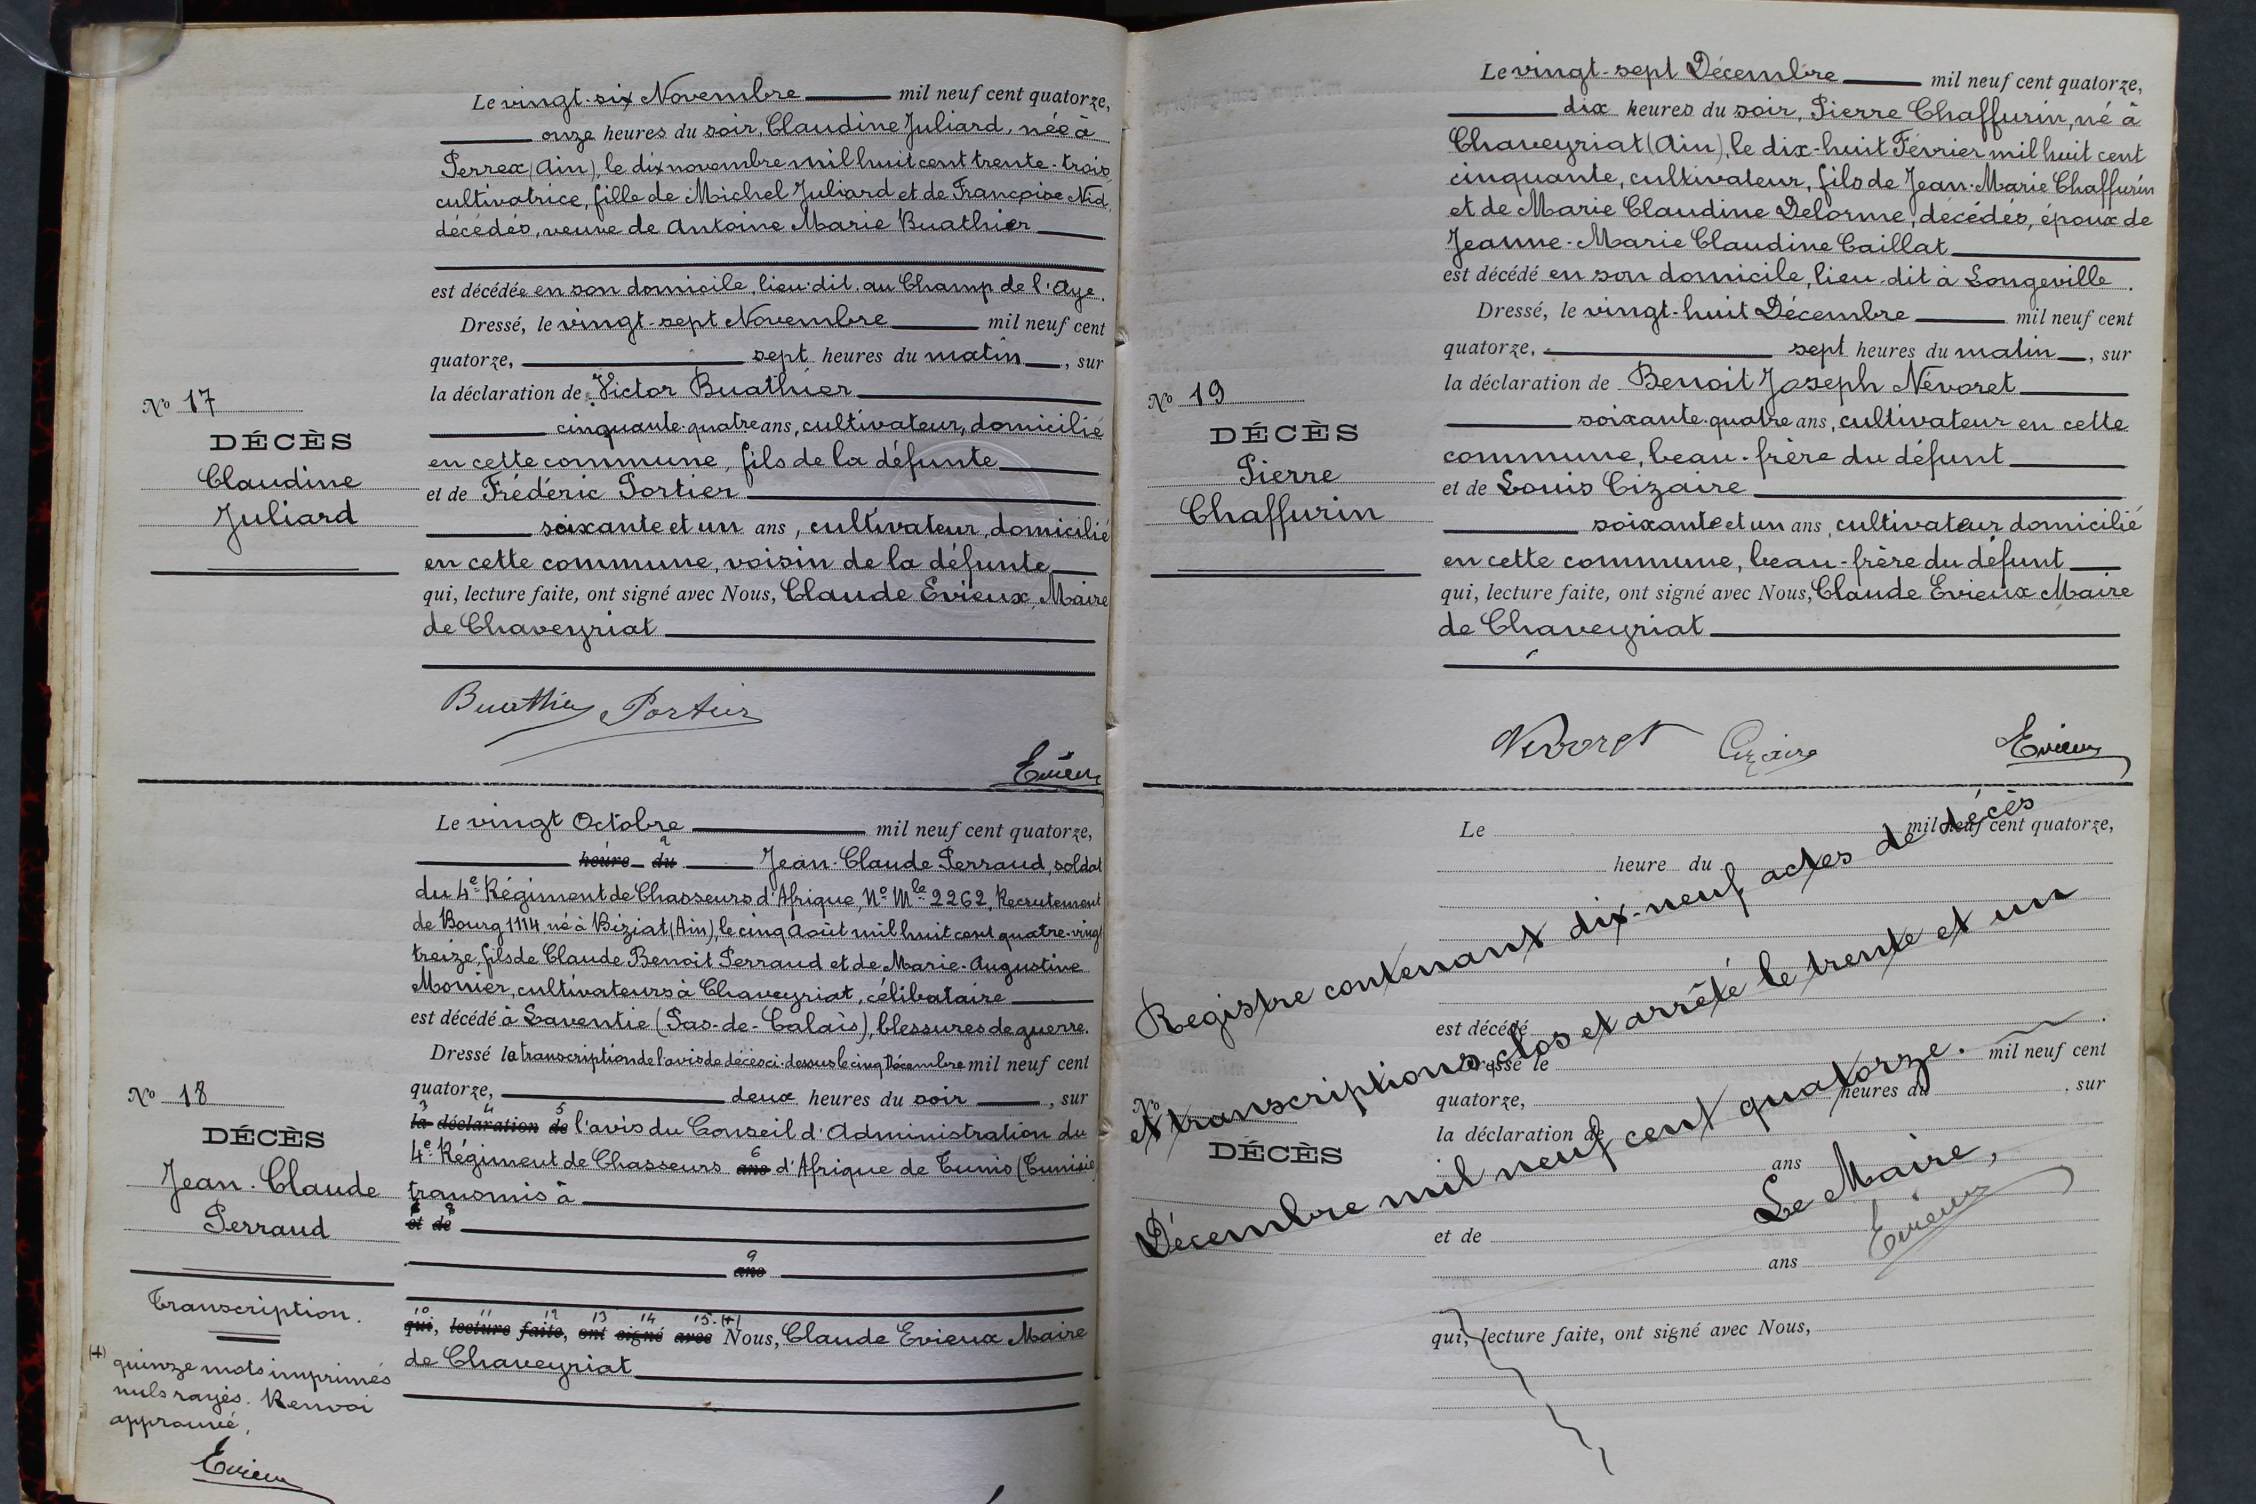 Le vingt-six Novembre mil neuf cent quatorze,
onze heures du soir, Claudine Juliard, née à
Perrex (Ain), le dix novembre mil huit cent trente-trois
cultivatrice, fille de Michel Juliard et de Françoise Nid,
décédés, veuve de Antoine Marie Buathier
est décédée en son domicile, lieu-dit, au Champ de l'Aye.
Dressé, le vingt-sept Novembre mil neuf cent
quatorze, sept heures du matin, sur
la déclaration de Victor Buathier
cinquante-quatre ans, cultivateur, domicilié
en cette commune, fils de la défunte
et de Frédéric Portier
soixante et un ans, cultivateur, domicilié
en cette commune, voisin de la défunte
qui, lecture faite, ont signé avec Nous, Claude Evieux, Maire
de Chaveyriat
No 17
DÉCÈS
Claudine
Juliard
Buathier Portier
Evieux
Le vingt Octobre mil neuf cent quatorze,
heure du Jean-Claude Perraud, soldat
2
du 4e Régiment de Chasseurs d'Afrique, No Mle 2262, Recrutement
de Bourg 1114 né à Biziat (Ain), le cinq Août mil huit cent quatre-vingt
treize, fils de Claude Benoit Perraud et de Marie-Augustine
Monier, cultivateurs à Chaveyriat, célibataire
est décédé à Laventie (Pas-de-Calais), blessures de guerre.
Dressé la transcription de l'avis de décès ci-dessus le cinq Décembre mil neuf cent
quatorze, deux heures du soir, sur
3 4 5
la déclaration de l'avis du Conseil d'Administration du
6
4e Régiment de Chasseurs ans d'Afrique de Tunis (Tunisie)
transmis à
et de
9
ans
10 11 12 13 14 15 (+)
qui, lecture faite, ont signé avec Nous, Claude Evieux Maire
de Chaveyriat
No 18
DÉCÈS
Jean-Claude
Perraud
Transcription.
(+) quinze mots imprimés
nuls rayés. Renvoi
approuvé,
Evieux
Le vingt-sept Décembre mil neuf cent quatorze,
dix heures du soir, Pierre Chaffurin, né à
Chaveyriat (Ain), le dix-huit Février mil huit cent
cinquante, cultivateur, fils de Jean-Marie Chaffurin
et de Marie Claudine Delorme, décédés, époux de
Jeanne-Marie Claudine Caillat
est décédé en son domicile, lieu-dit à Longeville.
Dressé, le vingt-huit Décembre mil neuf cent
quatorze, sept heures du matin, sur
la déclaration de Benoit Joseph Névoret
soixante-quatre ans, cultivateur en cette
commune, beau-frère du défunt
et de Louis Cizaire
soixante et un ans, cultivateur domicilié
en cette commune, beau-frère du défunt
qui, lecture faite, ont signé avec Nous, Claude Evieux Maire
de Chaveyriat
No 19
DÉCÈS
Pierre
Chaffurin
Névoret Cizaire Evieux
Le mil neuf cent quatorze,
heure du
est décédé
Dressé le mil neuf cent
quatorze, heures du, sur
la déclaration de
ans
et de
ans
qui, lecture faite, ont signé avec Nous,
No
DÉCÈS
Registre contenant dix-neuf actes de décès
et transcriptions, clos et arrêté le trente et un
Décembre mil neuf cent quatorze.
Le Maire,
Evieux